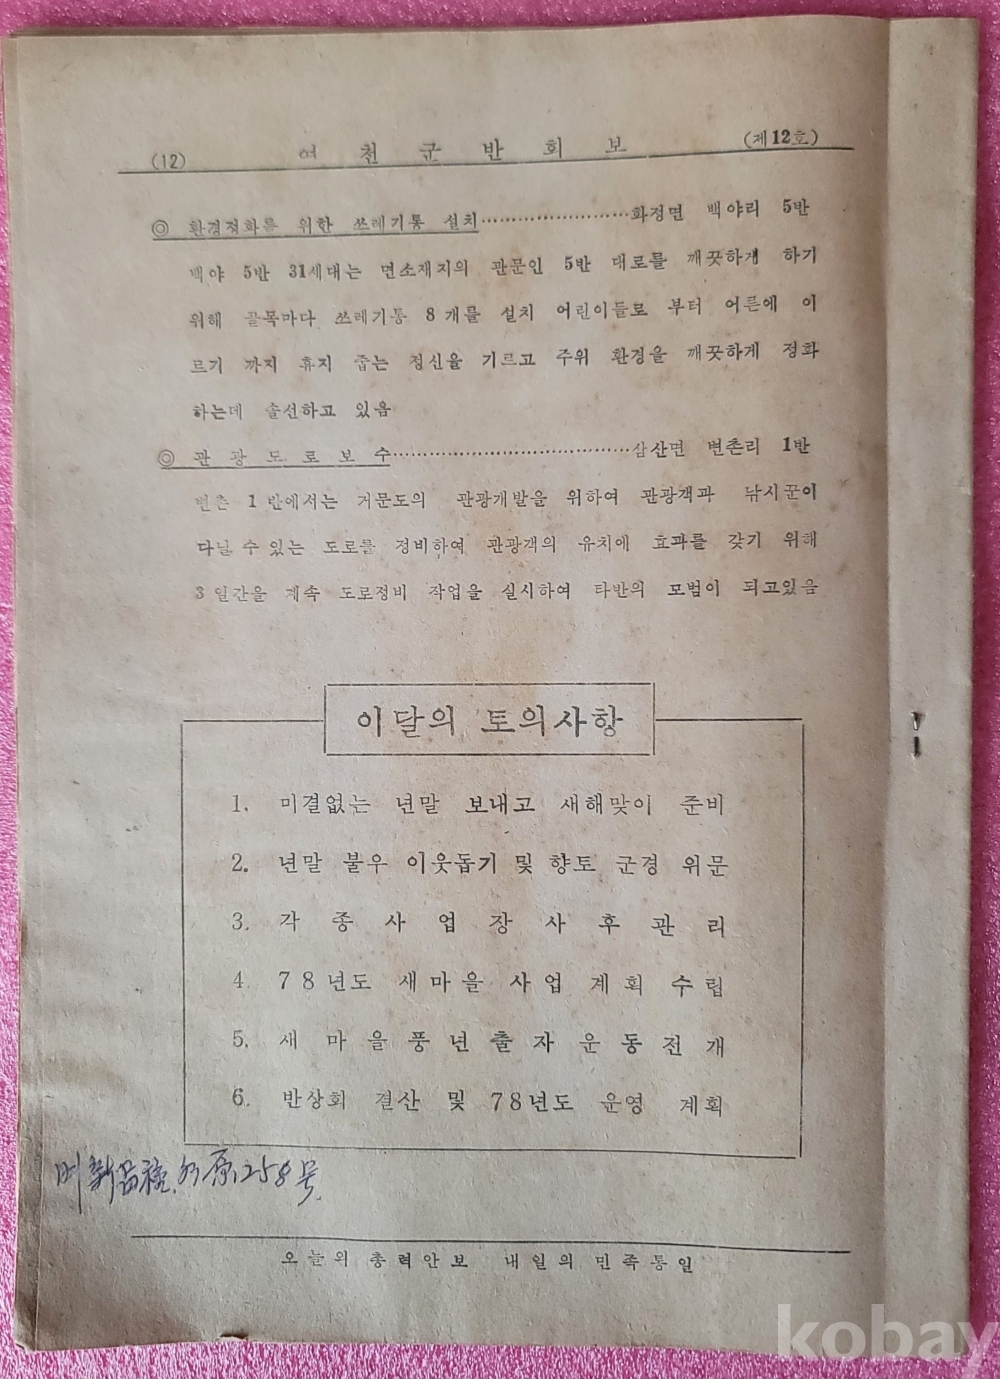 (12) 여천군반회보 (제12호)
◎ 환경정화를 위한 쓰레기통 설치……………………화정면 백야리 5반
백야 5반 31세대는 면소재지의 관문인 5반 대로를 깨끗하게 하기
위해 골목마다 쓰레기통 8개를 설치 어린이들로 부터 어른에 이
르기 까지 휴지 줍는 정신을 기르고 주위 환경을 깨끗하게 정화
하는데 솔선하고 있음
◎ 관광도로보수…………………………………삼산면 변촌리 1반
변촌 1반에서는 거문도의 관광개발을 위하여 관광객과 낚시꾼이
다닐 수 있는 도로를 정비하여 관광객의 유치에 효과를 갖기 위해
3일간을 계속 도로정비 작업을 실시하여 타반의 모범이 되고있음
이달의 토의사항
1. 미결없는 년말 보내고 새해맞이 준비
2. 년말 불우 이웃돕기 및 향토 군경 위문
3. 각종사업장사후관리
4. 78년도 새마을 사업 계획 수립
5. 새마을풍년출자운동전개
6. 반상회 결산 및 78년도 운영 계획
258号
오늘의 총력안보 내일의 민족통일
kobay